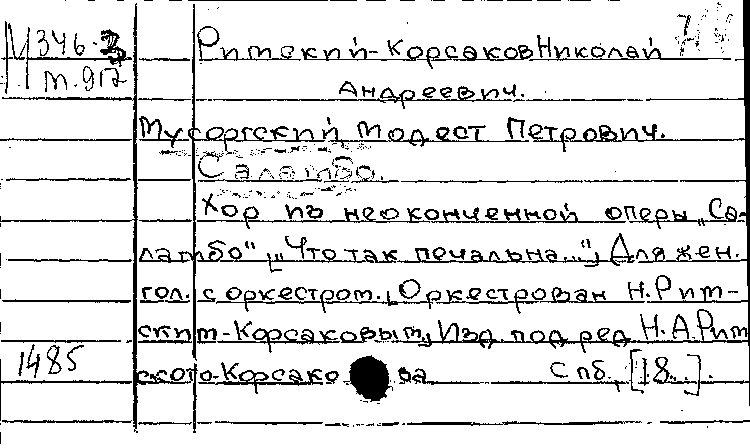 М 346.3
т.917
Римский-Корсаков Николай
Андреевич.
Мусоргский Модест Петрович.
Саламбо.
Хор из неоконченной оперы „Са-
ламбо" [„Что так печальна..."] Для жен.
гол. с оркестром. [Оркестрован Н. Рим-
ским-Корсаковым] Изд. под ред. Н.А. Рим
1485
ского-Корсакова Спб, [18..].